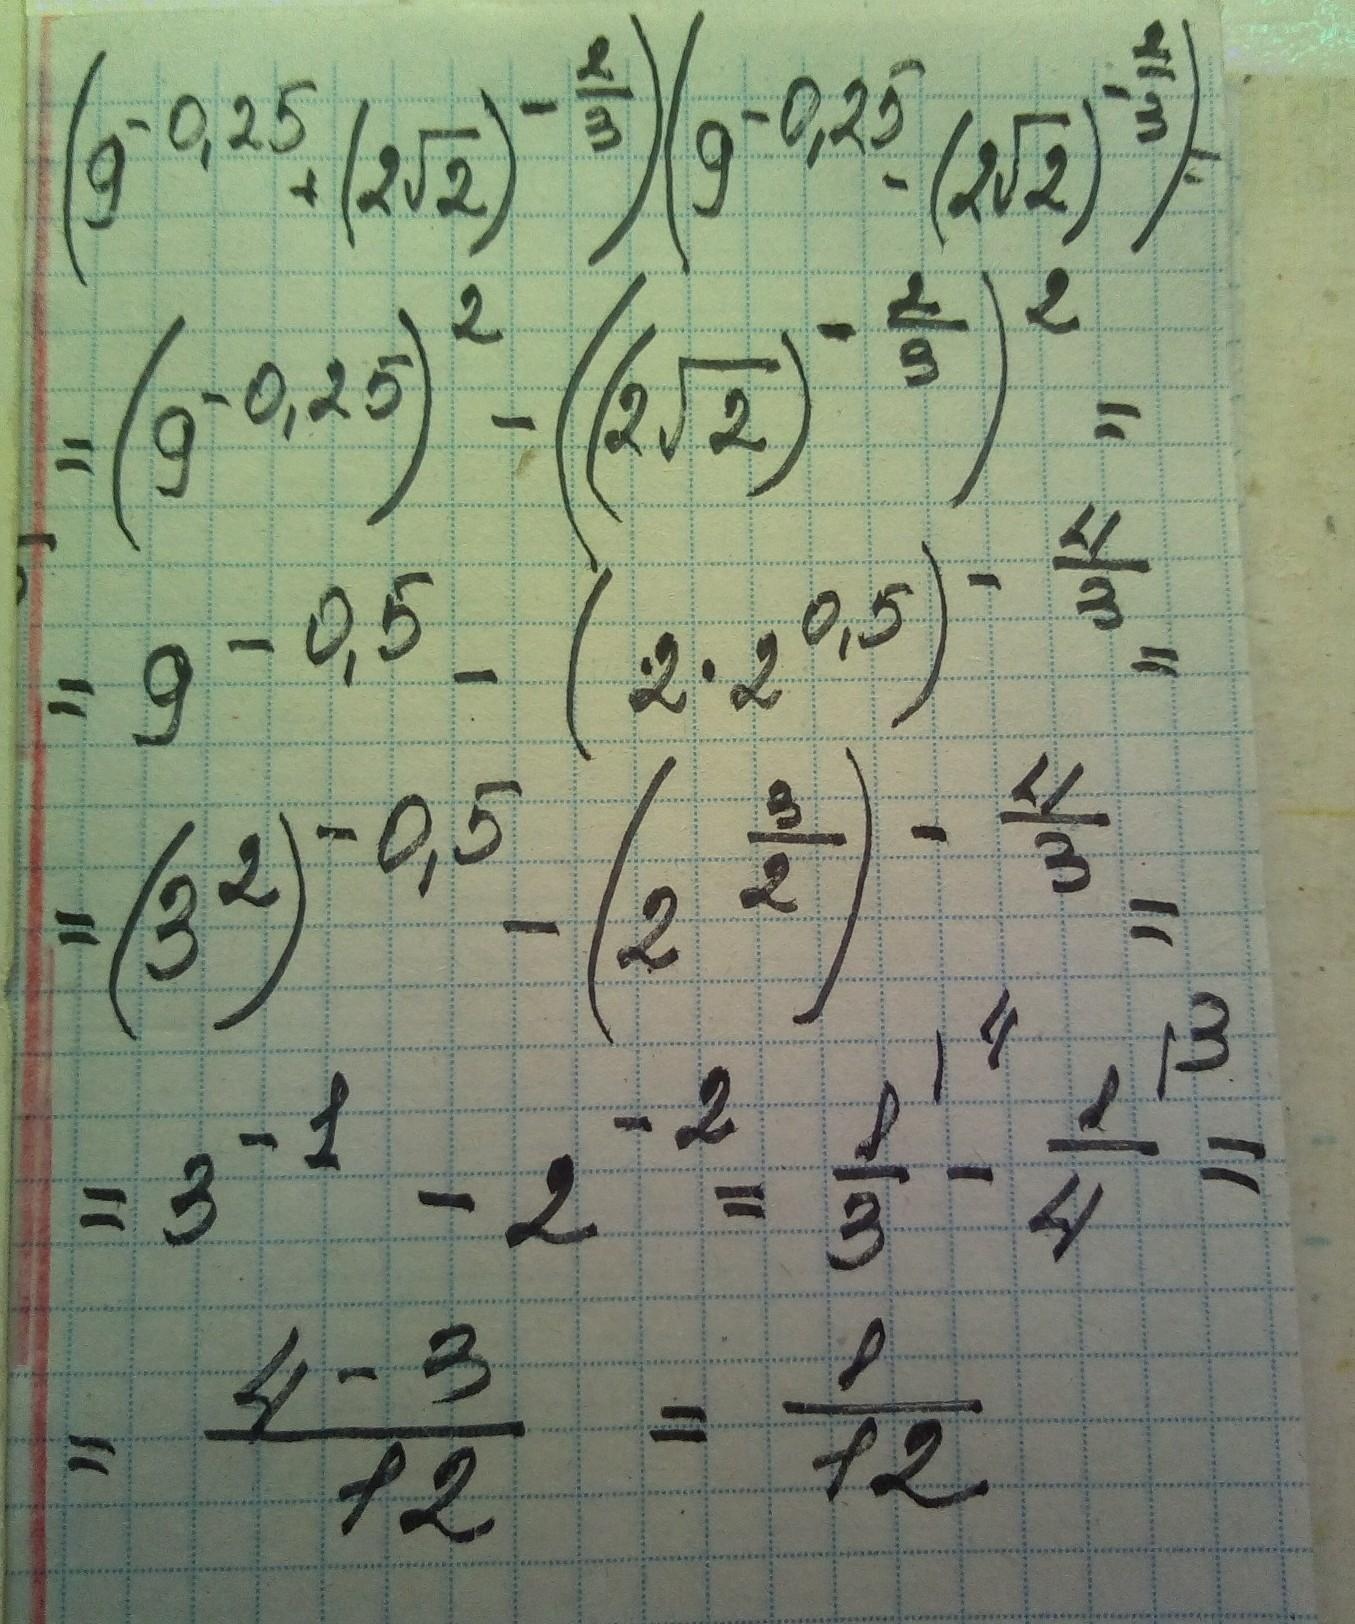 (9^{-0,25} + (2√2)^{-2/3})(9^{-0,25} - (2√2)^{-2/3}) =
= (9^{-0,25})^2 - ((2√2)^{-2/3})^2 =
= 9^{-0,5} - (2·2^{0,5})^{-4/3} =
= (3^2)^{-0,5} - (2^{3/2})^{-4/3} =
= 3^{-1} - 2^{-2} = 1/3 |4 - 1/4 |3 =
= (4-3)/12 = 1/12